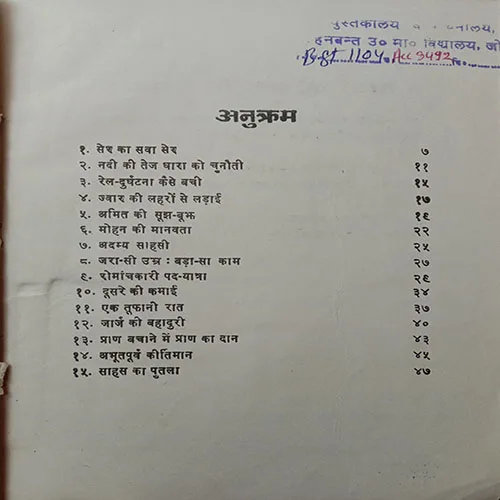 पुस्तकालय
हनवन्त उ० मा० विद्यालय, जो
1104 Acc 3492
अनुक्रम
१. सेर का सवा सेर ७
२. नदी की तेज धारा को चुनौती ११
३. रेल-दुर्घटना कैसे बची १५
४. ज्वार की लहरों से लड़ाई १७
५. अमित की सूझ-बूझ १९
६. मोहन की मानवता २२
७. अदम्य साहसी २५
८. जरा-सी उम्र : बड़ा-सा काम २७
९. रोमांचकारी पद-यात्रा २९
१०. दूसरे की कमाई ३४
११. एक तूफानी रात ३७
१२. जार्ज की बहादुरी ४०
१३. प्राण बचाने में प्राण का दान ४३
१४. अभूतपूर्व कीर्तिमान ४५
१५. साहस का पुतला ४७